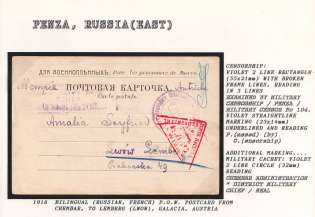 PENZA, RUSSIA(EAST)
ДЛЯ ВОЕННОПЛѢННЫХЪ. Pour les prisonniers de guerre.
ПОЧТОВАЯ КАРТОЧКА.
Carte postale.
Amalia Seyfried
Lwów
49
CENSORSHIP:
VIOLET 2 LINE RECTANGLE
(55x21mm) WITH BROKEN
FRAME LINES, READING
IN 3 LINES
EXAMINED BY MILITARY
CENSORSHIP / PENZA /
MILITARY CENSOR No 104.
VIOLET STRAIGHTLINE
MARKING (23x14mm)
UNDERLINED AND READING
P.(assed) (by)
G.(ensorship)
ADDITIONAL MARKING....
MILITARY CACHET: VIOLET
2 LINE CIRCLE (32mm)
READING
CHEMBAR ADMINISTRATION
* DISTRICT MILITARY
CHIEF / SEAL
1916 BILINGUAL (RUSSIAN, FRENCH) P.O.W. POSTCARD FROM
CHEMBAR, TO LEMBERG (LWOW), GALACIA, AUSTRIA